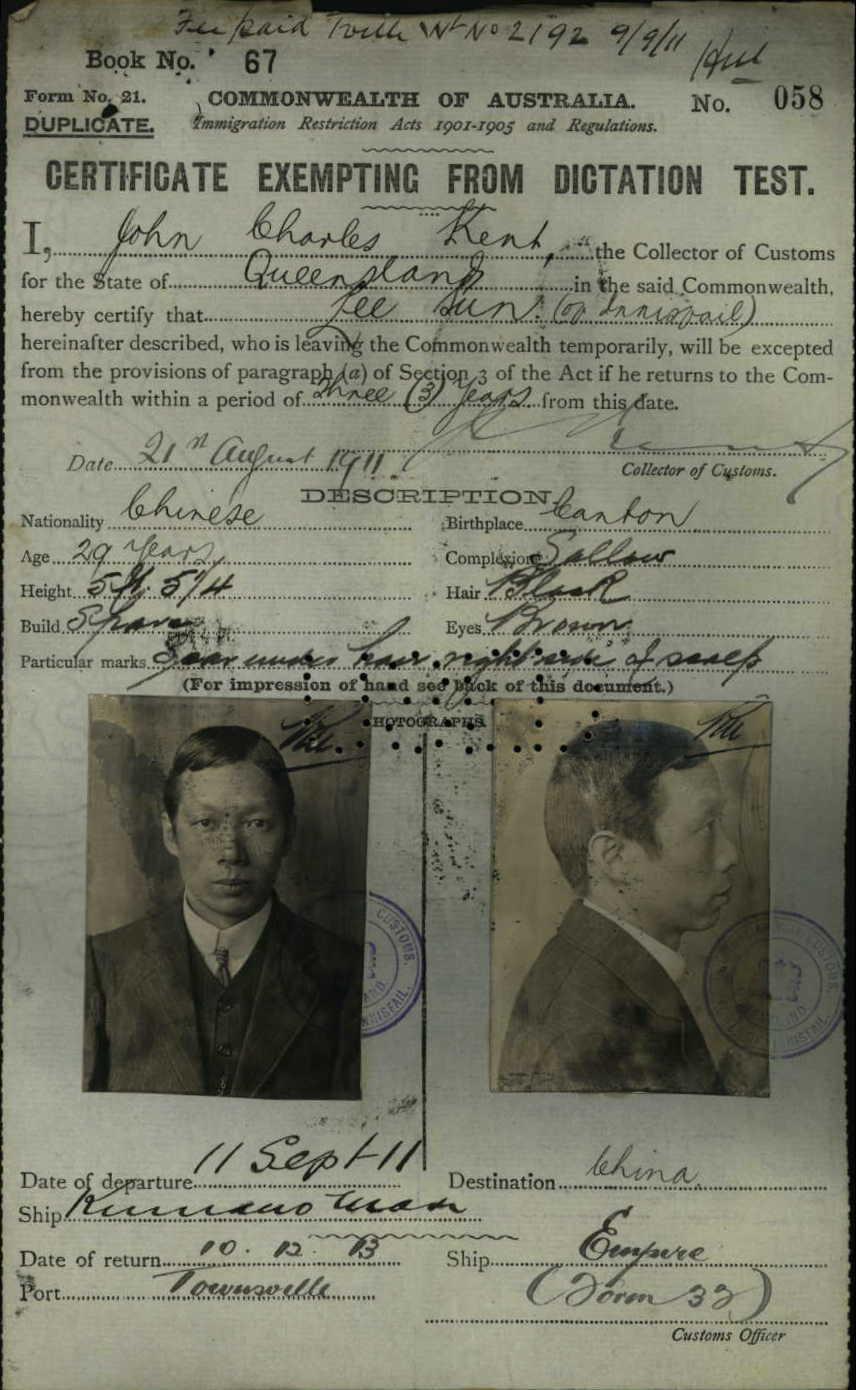 Fee paid Tville Wt No 2192 9/9/11
Book No. 67
Form No. 21. COMMONWEALTH OF AUSTRALIA. No. 058
DUPLICATE. Immigration Restriction Acts 1901-1905 and Regulations.
CERTIFICATE EXEMPTING FROM DICTATION TEST.
I, John Charles Kent, the Collector of Customs
for the State of Queensland in the said Commonwealth,
hereby certify that Lee Sun (of Innisfail)
hereinafter described, who is leaving the Commonwealth temporarily, will be excepted
from the provisions of paragraph (a) of Section 3 of the Act if he returns to the Com-
monwealth within a period of three (3) years from this date.
Date 21st August 1911 Collector of Customs.
DESCRIPTION.
Nationality Chinese Birthplace Canton
Age 29 years Complexion Sallow
Height 5 ft. 5 1/4 Hair Black
Build Spare Eyes Brown
Particular marks Scar under hair, right side of scalp
(For impression of hand see back of this document.)
PHOTOGRAPHS.
CUSTOMS. INNISFAIL.
CUSTOMS. INNISFAIL.
Date of departure 11 Sept 11 Destination China
Ship Kumano Maru
Date of return 10. 12. 13 Ship Empire
Port Townsville (Form 32)
Customs Officer